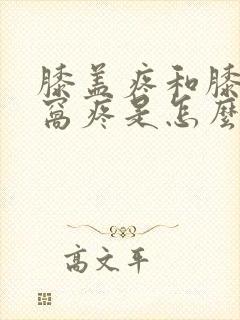 膝盖疼和膝
窝疼是怎麽
高文平